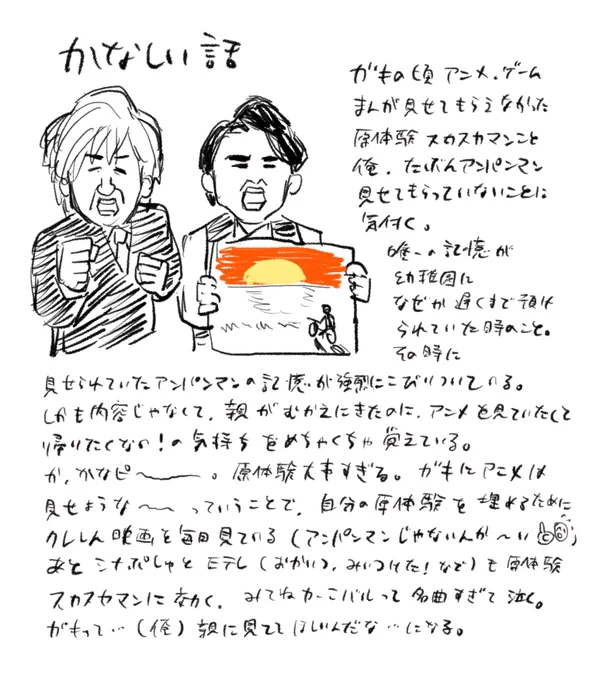 かなしい話
ガキの頃 アニメ、ゲーム
まんが見せてもらえなかった
原体験 スカスカマンこと
俺。たぶんアンパンマン
見せてもらっていないことに
気付く。
唯一の記憶が
幼稚園に
なぜか遅くまで預け
られていた時のこと。
その時に
見せられていたアンパンマンの記憶が強烈にこびりついている。
しかも内容じゃなくて、親がむかえにきたのに、アニメを見ていたくて
帰りたくない!の気持ちをめちゃくちゃ覚えている。
か、かなピ〜。原体験大事すぎる。ガキにアニメは
見せような〜〜っていうことで、自分の原体験を埋めるために
クレしん映画を毎日見ている(アンパンマンじゃないんか〜い)
あと シナぷしゅと Eテレ(おかいつ、みいつけた!など)も原体験
スカスカマンに効く。みてねカーニバルって名曲すぎて泣く。
ガキって…(俺)親に見ててほしいんだな…になる。